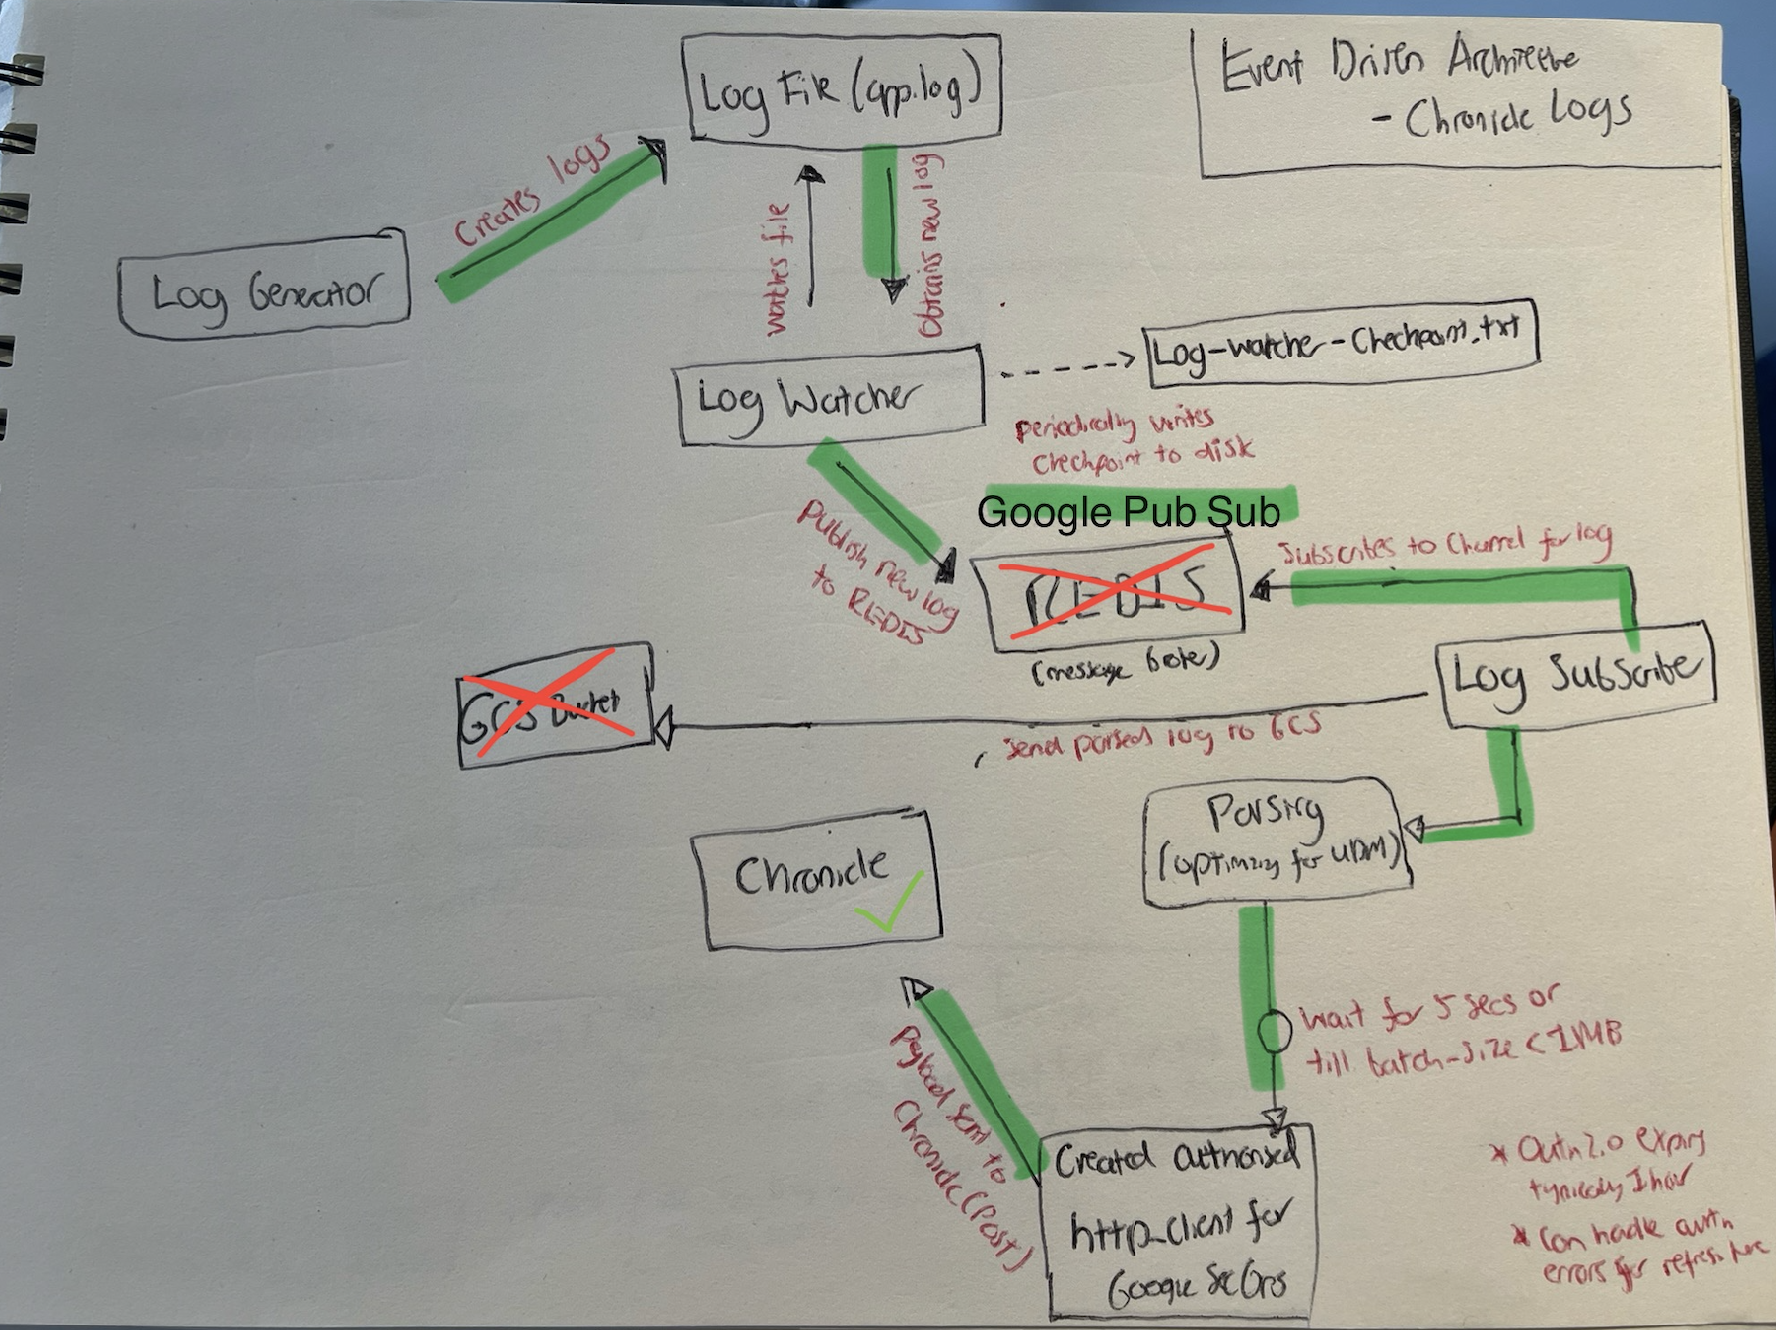 Event Driven Architecture
- Chronicle Logs
Log File (app.log)
Creates logs
Log Generator
watches file
Obtains new log
Log Watcher
Log-watcher-Checkpoint.txt
periodically writes
checkpoint to disk
Google Pub Sub
Publish new log
to REDIS
REDIS
(message broker)
Subscribes to Channel for log
Log Subscribe
GCS Bucket
Send parsed log to GCS
Parsing
(optimizing for UDM)
Chronicle
wait for 5 secs or
till batch-size < 1MB
payload sent to
Chronicle (Post)
Created authorised
http_client for
Google SecOps
* Outh 2.0 expiry
typically 1 hour
* Can handle auth
errors for refresh